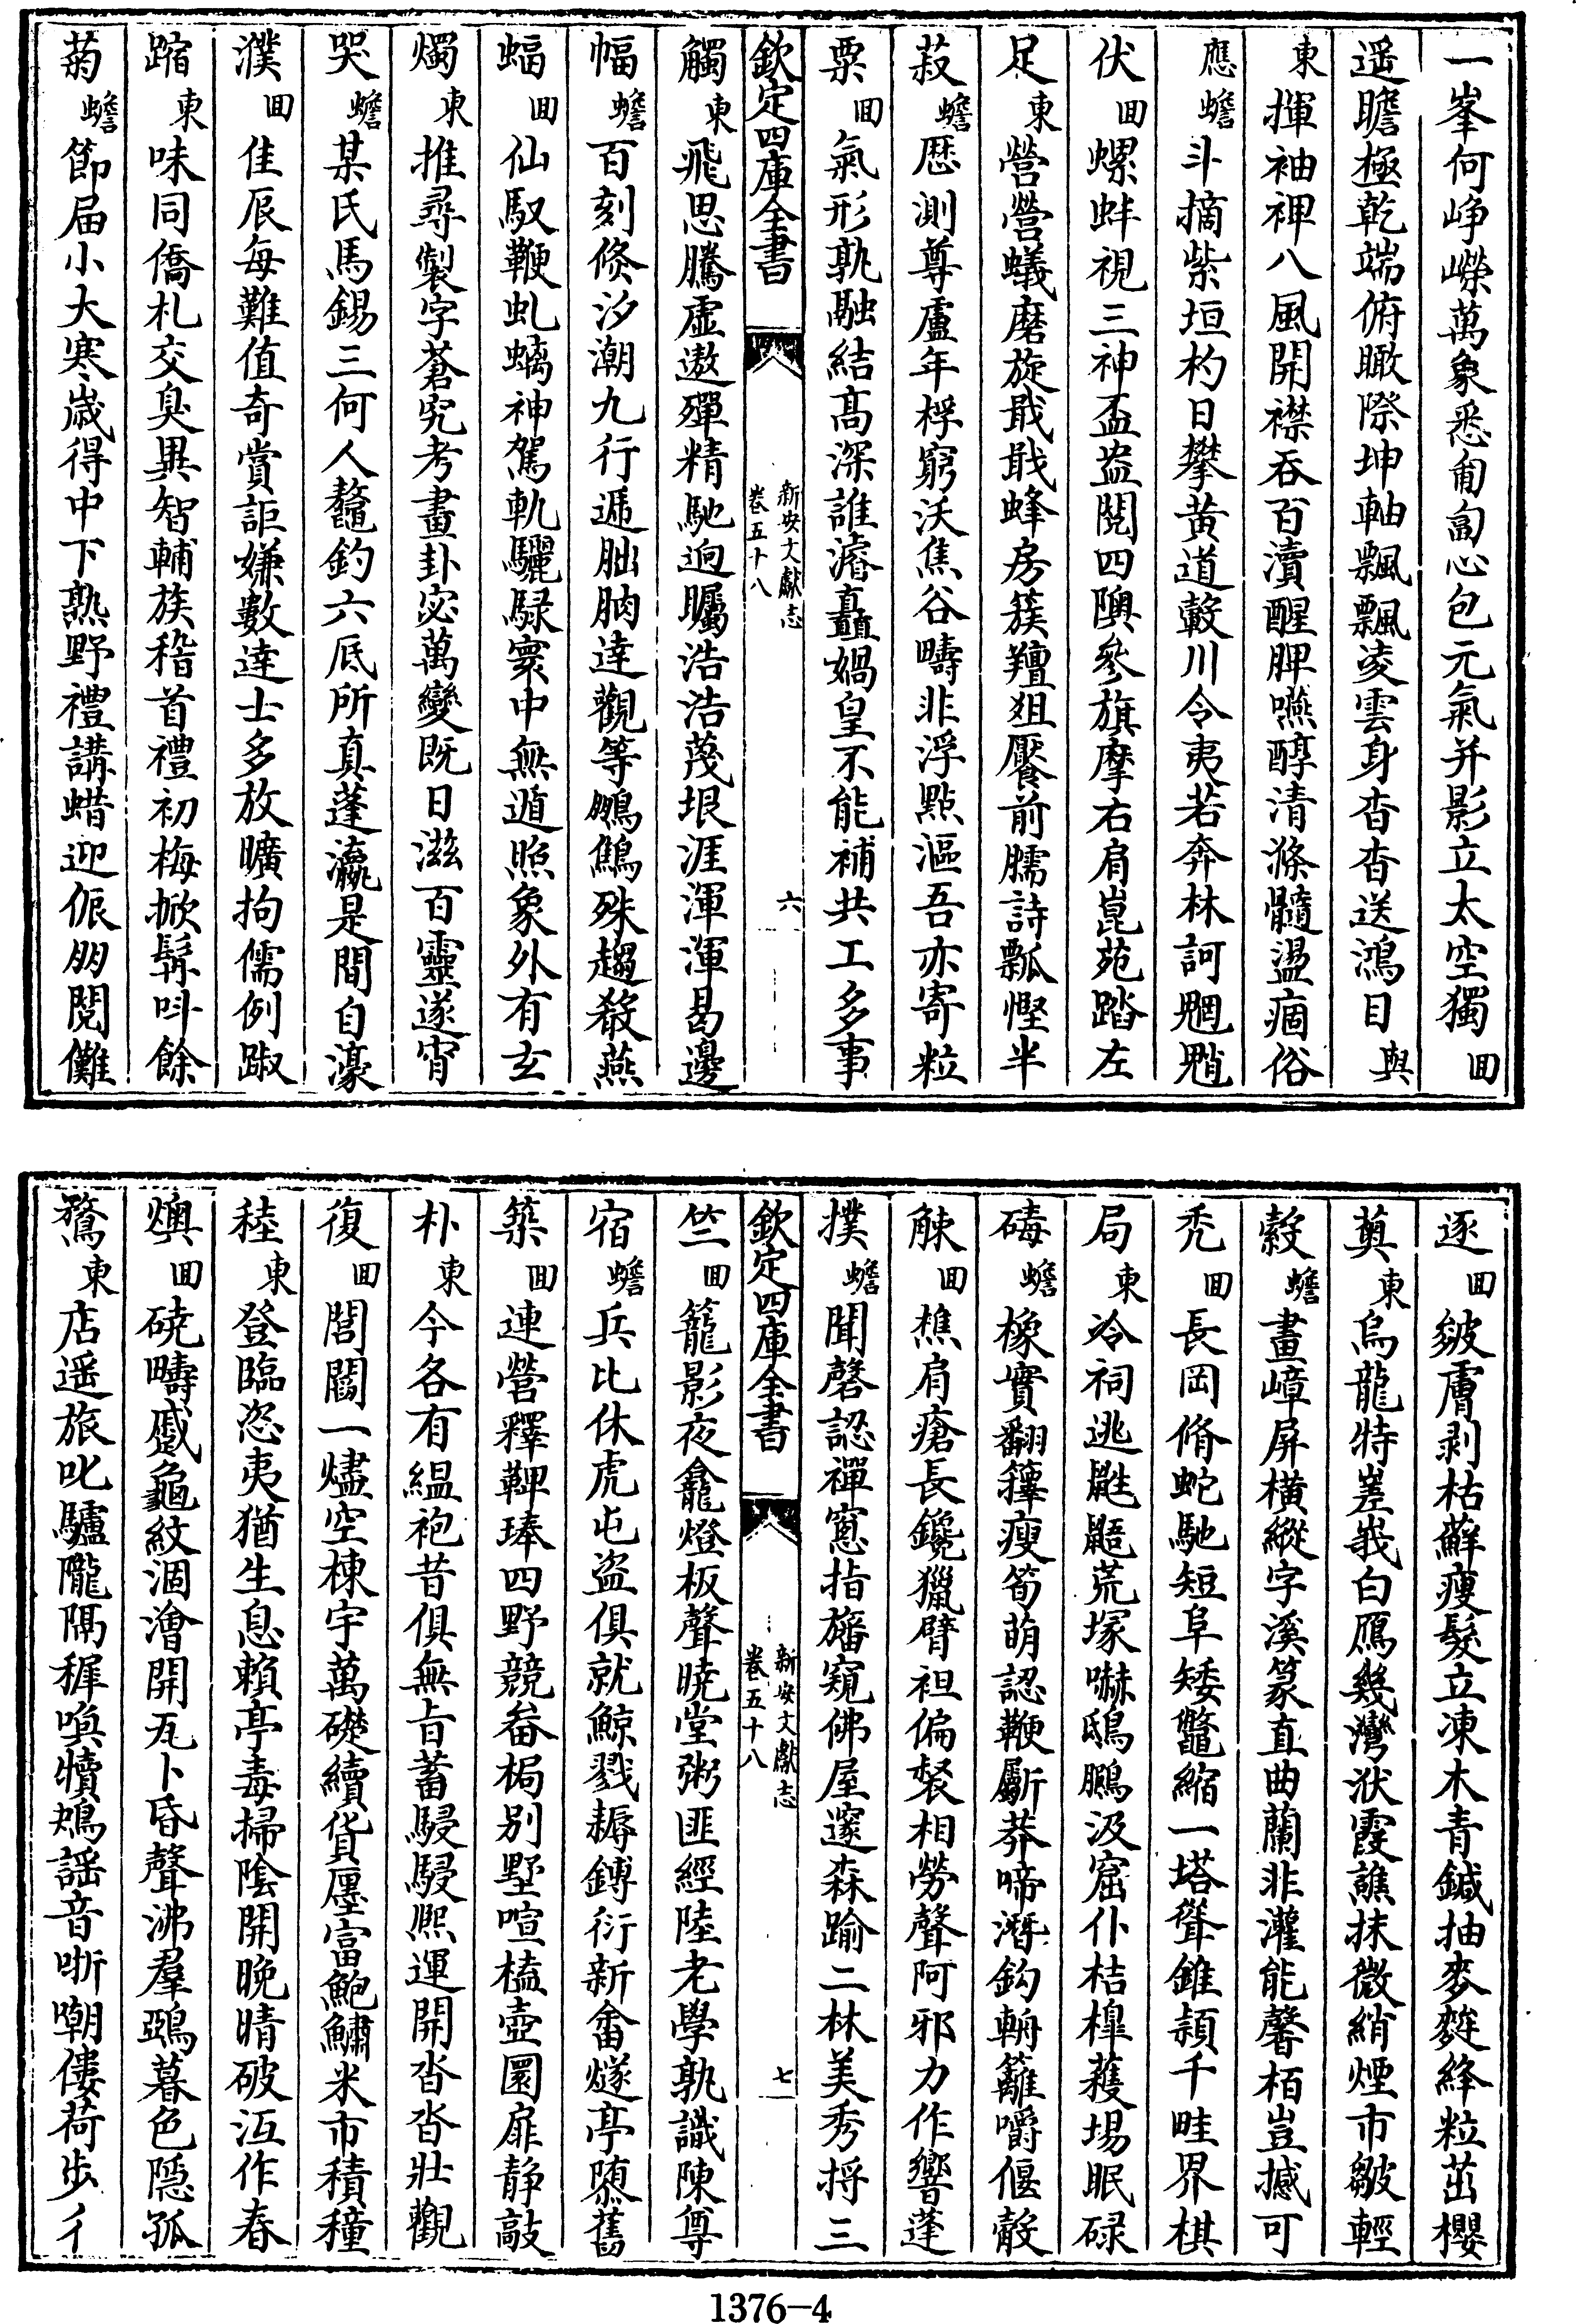 一峯何崢嶸萬象悉匍匐心包元氣并影立太空獨回
遥瞻極乾端俯瞰際坤軸飄飄凌雲身杳杳送鴻目與
東揮袖禆八風開襟吞百瀆醒脾嚥醇清滌髓盪痼俗
應蟾斗摘紫垣杓日攀黄道轂川令夷若奔林訶魍魈
伏回螺蚌視三神盃盎閲四隩參旗摩右肩崑苑踏左
足東營營蟻磨旋戢戢蜂房簇羶爼饜前臑詩瓢慳半
菽蟾厯測尊盧年桴窮沃焦谷疇非浮點漚吾亦寄粒
粟回氣形孰融結髙深誰濬矗媧皇不能補共工多事
欽定四庫全書
新安文獻志
卷五十八
六
觸東飛思騰虚遨殫精馳逈矚浩浩蔑垠涯渾渾曷邊
幅蟾百刻倏汐潮九行遞朏朒達觀等鵬鷦殊趨殽燕
蝠回仙馭鞭虬螭神駕軌驪騄寰中無遁照象外有玄
燭東推尋製字蒼究考畫卦宓萬變既日滋百靈遂宵
哭蟾某氏馬錫三何人鼇釣六厎所真蓬瀛是間自濠
濮回佳辰每難值奇賞詎嫌數逹士多放曠拘儒例踧
蹜東味同僑札交臭異智輔族稽首禮初梅掀髯呌餘
菊蟾節届小大寒歳得中下熟野禮講蜡迎侲朋閲儺
逐回皴膚剥枯蘚瘦髮立凍木青鍼抽麥麰絳粒茁櫻
薁東烏龍特嵳峩白鴈幾灣洑霞譙抹微綃煙市皺輕
縠蟾畫嶂屏横縱字溪篆直曲蘭非灌能馨栢豈撼可
秃回長岡脩蛇馳短阜矮鼈縮一塔聳錐頴千畦界棋
局東冷祠逃鼪鼯荒塚嚇鴟鵩汲窟仆桔橰蓌場眠碌
碡蟾橡實翻籜瘦筍萌認鞭斸莽啼潛鈎輈籬嚼偃觳
觫回樵肩瘡長鑱獵臂袒偏裻相勞聲阿邪力作響蓬
撲蟾聞磬認禪窻指旛窺佛屋邃森踰二林美秀捋三
欽定四庫全書
新安文獻志
卷五十八
七
竺回籠影夜龕燈板聲曉堂粥匪經陸老學孰識陳尊
宿蟾兵比休虎屯盜俱就鯨戮耨鎛衍新畬燧亭隳舊
築回連營釋鞞琫四野競畚梮别墅喧榼壺圜扉静敲
朴東今各有緼袍昔俱無㫖蓄駸駸熈運開沓沓壯觀
復回閭閻一燼空棟宇萬礎續貨廛富鮑鱐米市積穜
稑東登臨恣夷猶生息頼亭毒掃隂開晩晴破沍作春
燠回硗疇蹙龜紋涸澮開瓦卜昏聲沸羣鵶暮色隠孤
鶩東店遥旅叱驢隴隔穉喚犢鴂謡音哳嘲僂荷步彳